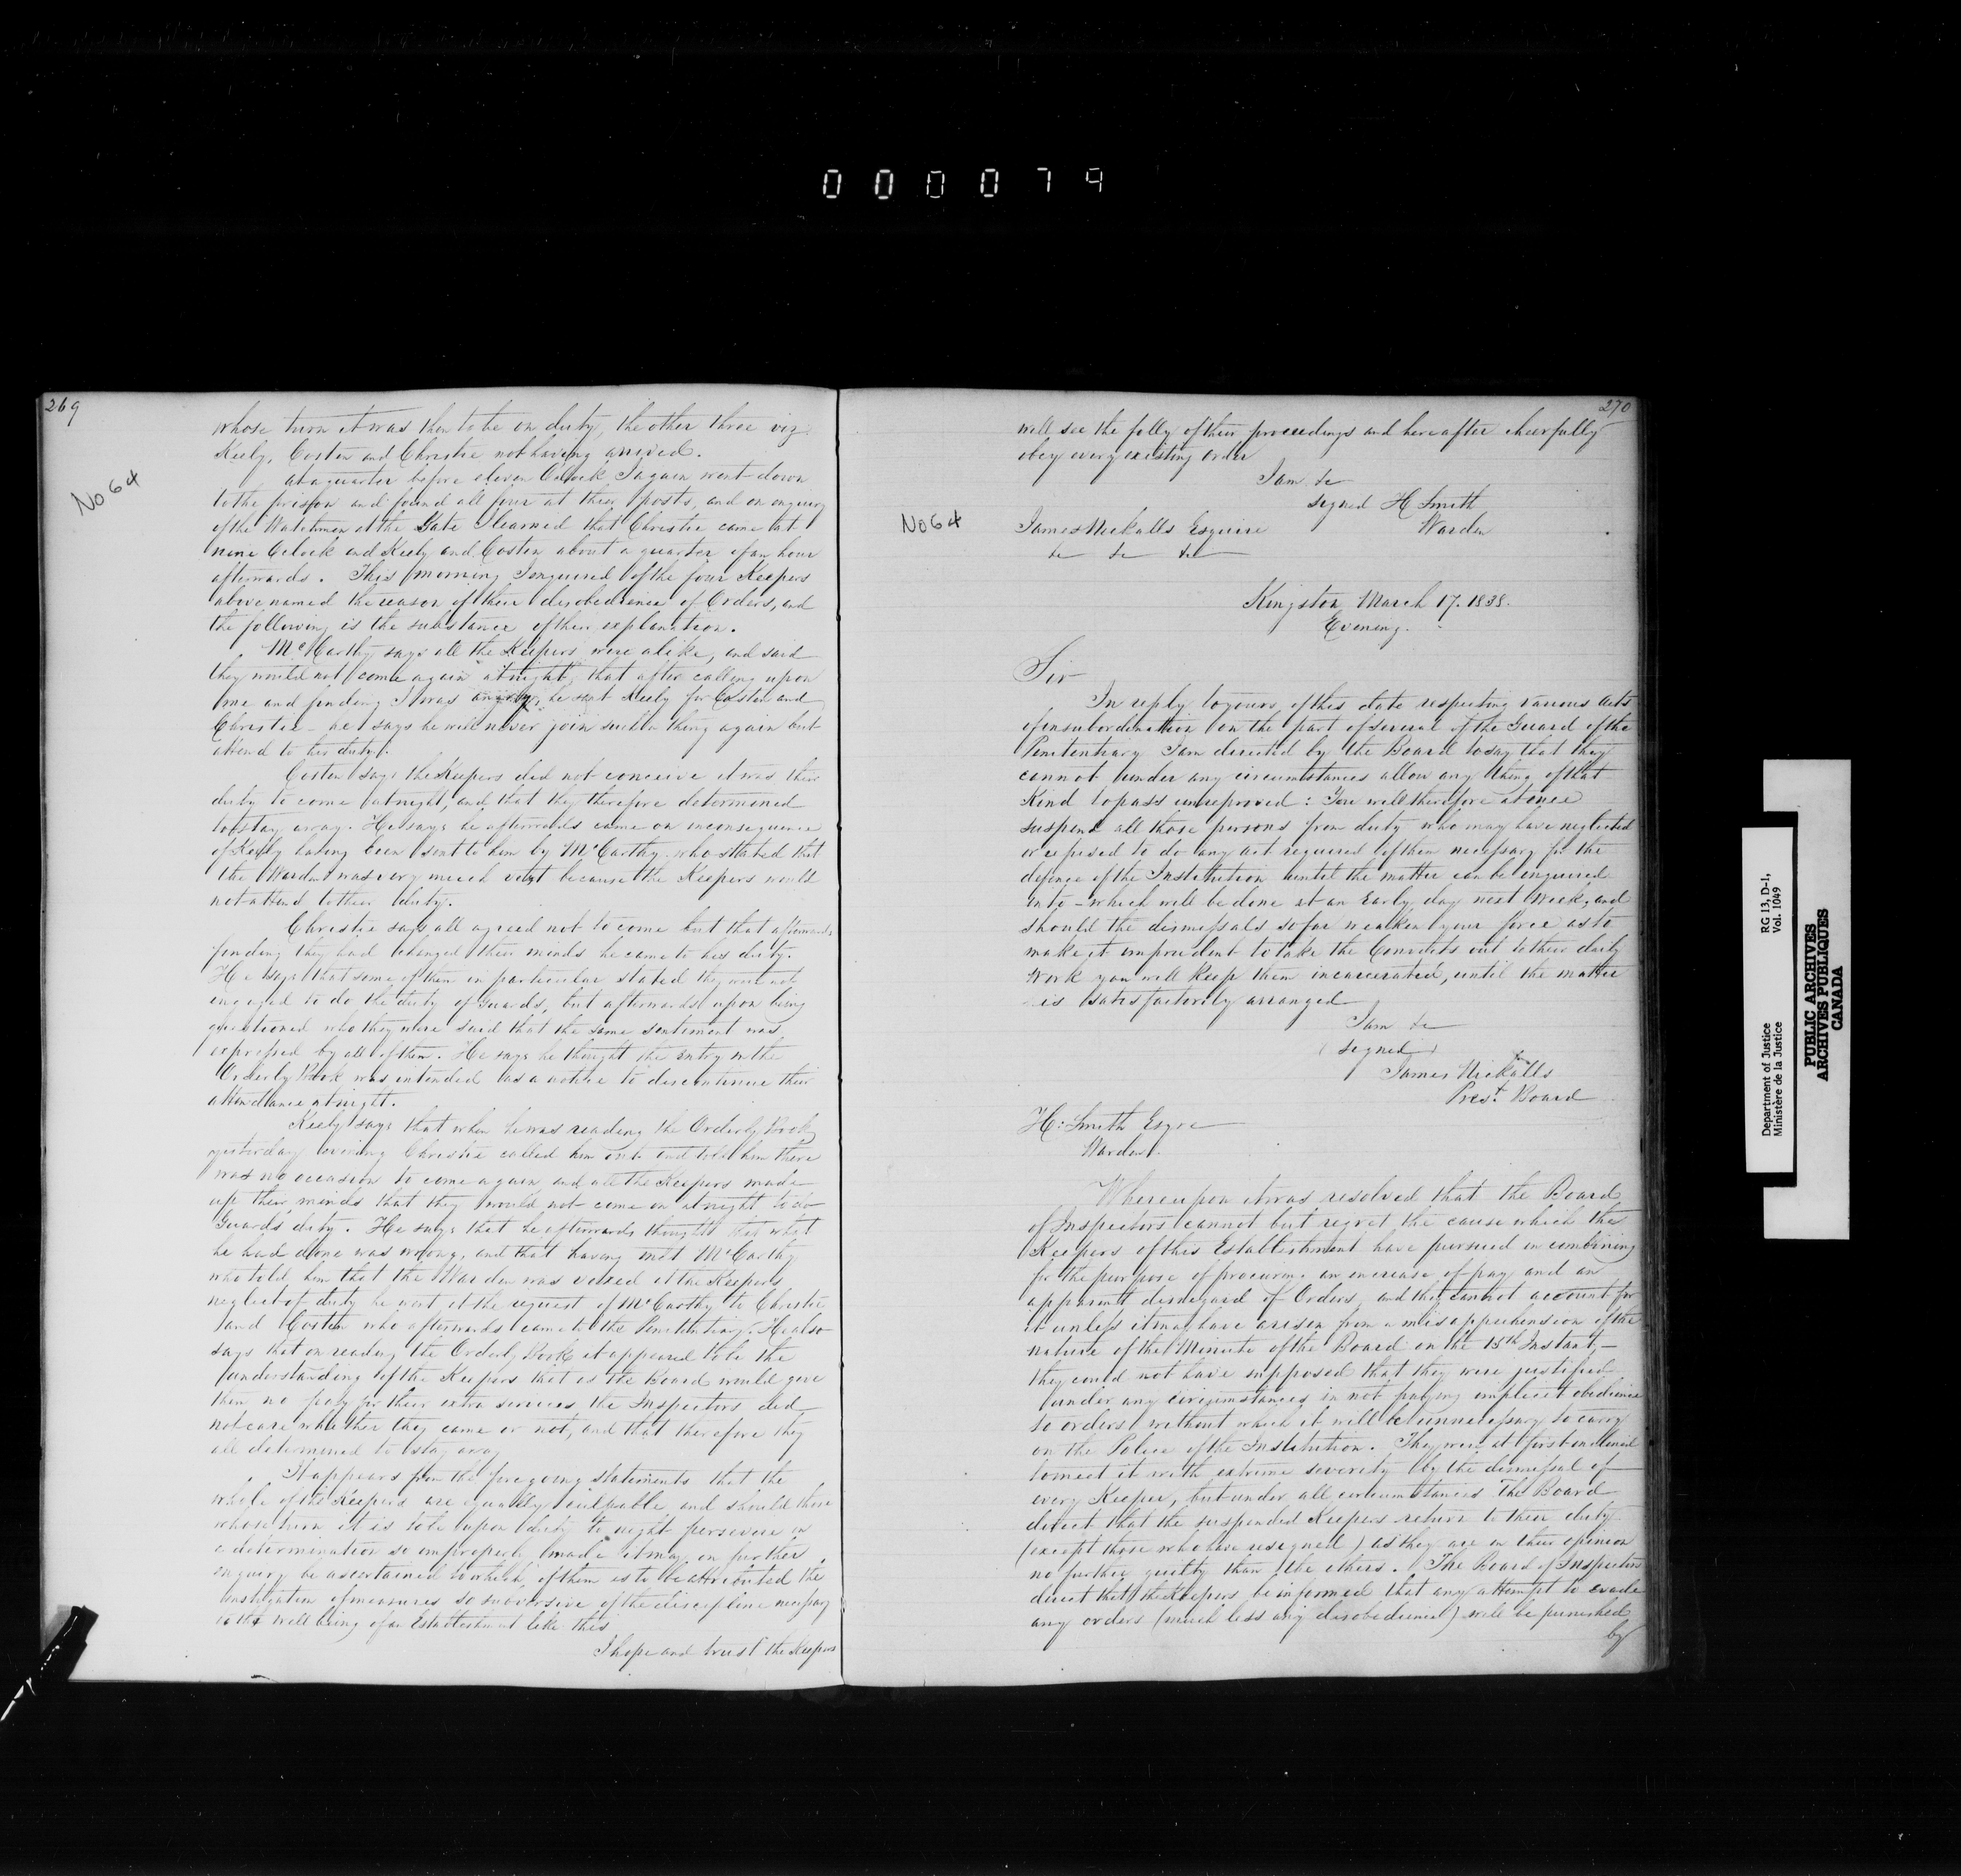 000079
269
No 64
whose turn it was then to be on duty, the other three viz.
Keely, Costen and Christie not having arrived.
At a quarter before eleven OClock I again went down
to the prison and found all four at their posts, and on enquiry
of the Watchman at the Gate I learned that Christie came at
nine OClock and Keely and Costen about a quarter of an hour
afterwards. This morning I enquired of the four Keepers
above named the reason of their disobedience of Orders, and
the following is the substance of their explanation.
McCarthy says all the Keepers were alike, and said
they would not come again at night, that after calling upon
me and finding I was angry, he sent Keely for Costen and
Christie - he says he will never join such a thing again but
attend to his duty.
Costen says the Keepers did not conceive it was their
duty to come at night, and that they therefore determined
to stay away. He says he afterwards came on inconsequence
of Keely having been sent to him by McCarthy who stated that
the Warden was very much vext because the Keepers would
not attend to their duty.
Christie says all agreed not to come but that afterwards
finding they had changed their minds he came to his duty.
He says that some of them in particular stated they were not
engaged to do the duty of Guards, but afterwards upon being
questioned who they were said that the same sentiment was
expressed by all of them. He says he thought the entry in the
Orderly Book was intended as a notice to discontinue their
attendance at night.
Keely says that when he was reading the Orderly Book
yesterday evening Christie called him out and told him there
was no occasion to come again and all the Keepers made
up their minds that they would not come on at night to do
Guards duty. He says that he afterwards thought that what
he had done was wrong, and that having met McCarthy
who told him that the Warden was vexed at the Keepers
neglect of duty he went at the request of McCarthy to Christie
and Costen who afterwards came to the Penitentiary. He also
says that on reading the Orderly Book it appeared to be the
understanding of the Keepers that as the Board would give
them no pay for their extra services the Inspectors did
not care whether they came or not, and that therefore they
all determined to stay away
It appears from the foregoing statements that the
whole of the Keepers are equally culpable and should those
whose turn it is to be upon duty to night persevere in
a determination so improperly made it may on further
enquiry be ascertained to which of them is to be attributed the
instigation of measures so subversive of the discipline necessary
to the well being of an Establishment like this
I hope and trust the Keepers
270
will see the folly of their proceedings and hereafter cheerfully
obey every existing order
I am &c
signed H Smith
Warden
No 64
James Nickalls Esquire
&c &c &c
Kingston March 17. 1838.
Evening.
Sir
In reply to yours of this date respecting various acts
of insubordination on the part of several of the Guard of the
Penitentiary I am directed by the Board to say that they
cannot under any circumstances allow any thing of that
Kind to pass unreproved: You will therefore at once
suspend all those persons from duty who may have neglected
or refused to do any act required of them necessary for the
defence of the Institution until the matter can be enquired
into - which will be done at an Early day next Week, and
should the dismissals so far weaken your force as to
make it imprudent to take the Convicts out to their daily
work you will keep them incarcerated, until the matter
is satisfactorily arranged
I am &c
(signed)
James Nickalls Jun
Prest. Board
H: Smith Esqre
Warden.
Whereupon it was resolved that the Board
of Inspectors cannot but regret the cause which the
Keepers of this Establishment have pursued in combining
for the purpose of procuring an increase of pay and an
apparent disregard of Orders, and they cannot account for
it unless it may have arisen from a misapprehension of the
nature of the Minute of the Board on the 15th Instant, -
they could not have supposed that they were justified
under any circumstances in not paying implicit obedience
to orders without which it will be unnecessary to carry
on the Police of the Institution. They were at first inclined
to meet it with extreme severity by the dismissal of
every Keeper, but under all circumstances The Board
direct that the suspended Keepers return to their duty
(except those who have resigned) as they are in their opinion
no further guilty than the others. The Board of Inspectors
direct that the Keepers be informed that any attempt to evade
any orders (much less any disobedience) will be punished
by
Department of Justice
Ministère de la Justice
RG 13, D-1,
Vol. 1049
PUBLIC ARCHIVES
ARCHIVES PUBLIQUES
CANADA